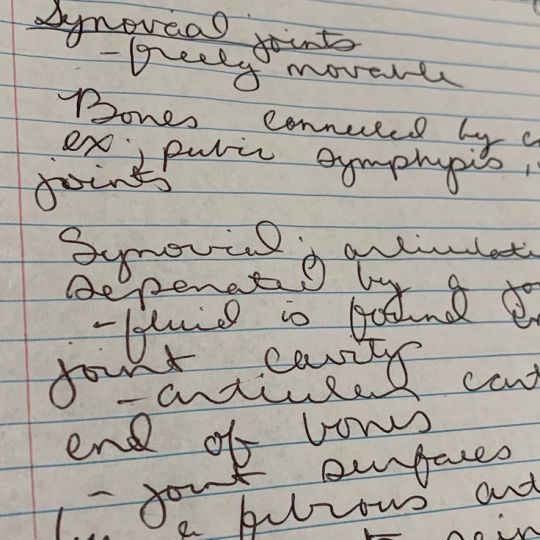 Synovial joints
- freely movable
Bones connected by
ex; pubic symphysis,
joints
Synovial; articulati
seperated by a jo
- fluid is found in
joint cavity
- articular cart
end of bones
- joint surfaces
a fibrous art